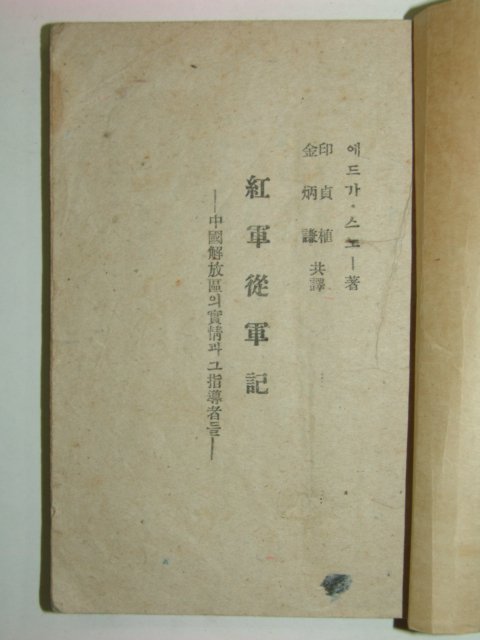 에드가·스노ー著
印貞植
金炳謙
共譯
紅軍從軍記
―中國解放區의實情과그指導者들―